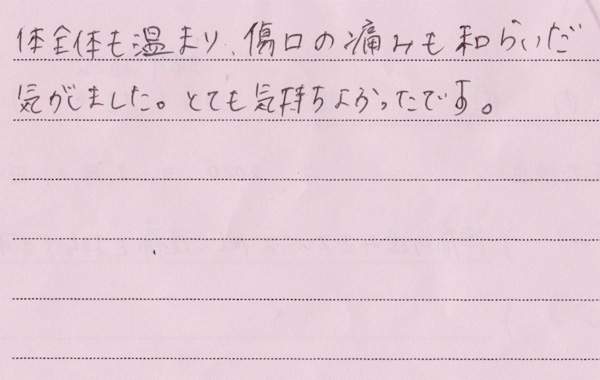 体全体も温まり、傷口の痛みも和らいだ
気がしました。とても気持ちよかったです。